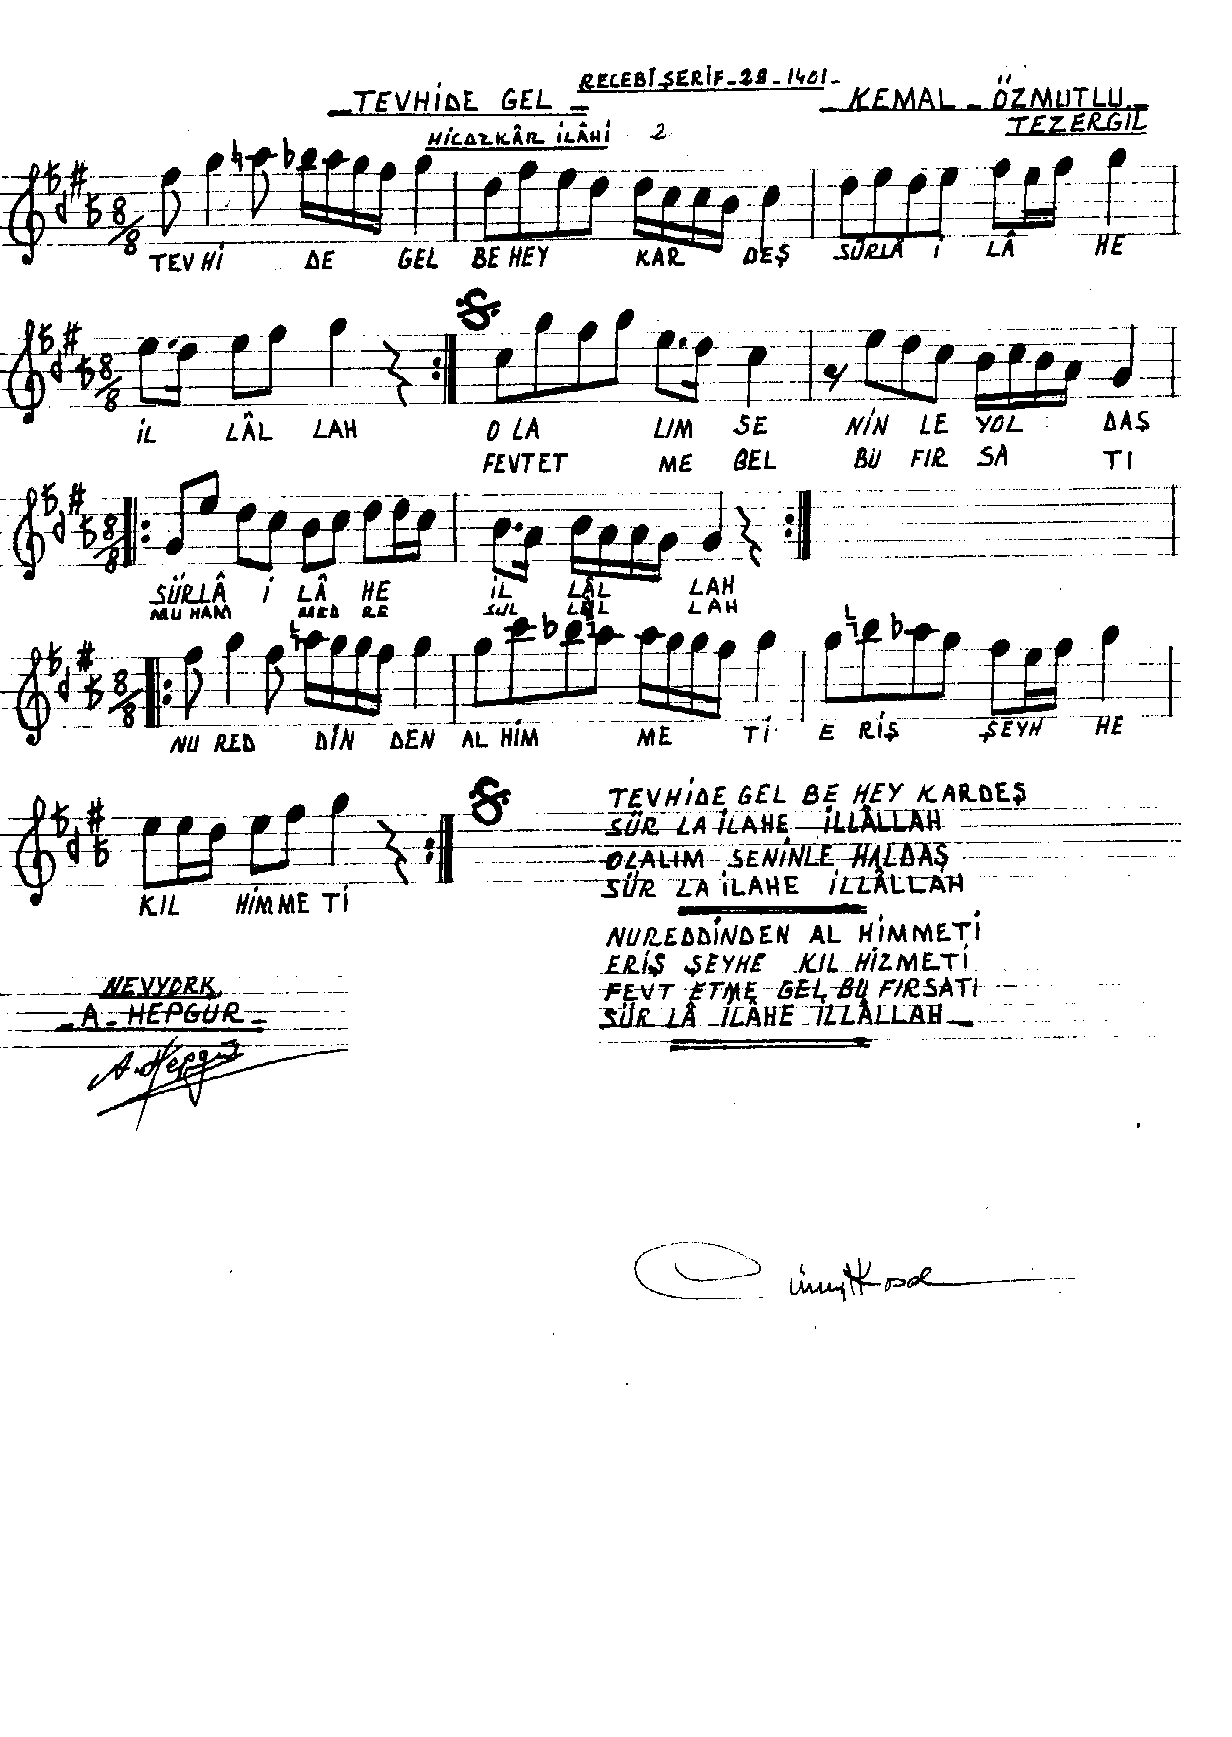 RECEBİ ŞERİF - 28 - 1401 -
- TEVHİDE GEL -
- KEMAL - ÖZMUTLU -
TEZERGİL
HİCAZKÂR İLÂHİ 2
8/8
TEV Hİ DE GEL BE HEY KAR DEŞ SÜRLÂ İ LÂ HE
8/8
İL LÂL LAH O LA LIM SE NİN LE YOL DAŞ
FEVTET ME GEL BU FIR SA TI
8/8
SÜRLÂ İ LÂ HE İL LÂL LAH
MUHAM MED RE SUL LÂL LAH
8/8
NU RED DİN DEN AL HİM ME Tİ E RİŞ ŞEYH HE
KIL HİMME Tİ
TEVHİDE GEL BE HEY KARDEŞ
SÜR LA İLAHE İLLÂLLAH
OLALIM SENİNLE HALDAŞ
SÜR LA İLAHE İLLÂLLAH
NUREDDİNDEN AL HİMMETİ
ERİŞ ŞEYHE KIL HİZMETİ
FEVT ETME GEL BU FIRSATI
SÜR LÂ İLÂHE İLLÂLLAH -
NEVYORK
- A - HEPGÜR -
A. Hepgür